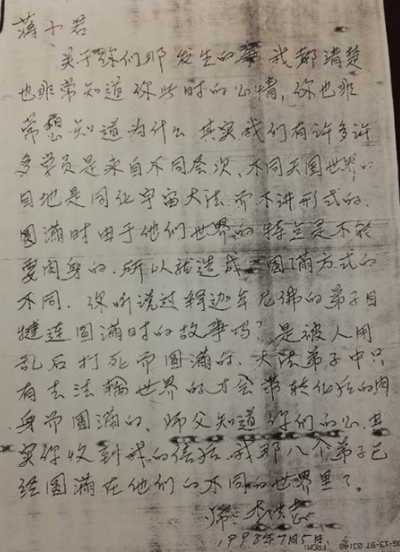 蒋小君
关于你们那发生的事我都清楚
也非常知道你此时的心情,你也非
常想知道为什么 其实我们有许多许
多学员是来自不同层次、不同天国世界的
目地是同化宇宙大法 而不讲形式的.
圆满时由于他们世界的特点是不能
要肉身的.所以就造成了圆满方式的
不同. 你听说过释迦牟尼佛的弟子目
犍连圆满时的故事吗?是被人用
乱石打死而圆满的.大法弟子中只
有去法轮世界的才会带转化后的肉
身而圆满的、师父知道你们的心.其
实你收到我的信后.我那八个弟子已
经圆满在他们的不同的世界里了.
1998年7月5日